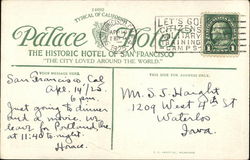 TYPICAL OF CALIFORNIA
Palace Hotel
THE HISTORIC HOTEL OF SAN FRANCISCO
"THE CITY LOVED AROUND THE WORLD."
LET'S GO!
CITIZENS
MILITARY
TRAINING
CAMPS
1
San Francisco Cal
Apr. 14/25.
6 p.m.
Just going to dinner
and a movie. We
leave for Portland, Ore.
at 11:40 to-night.
Horace.
M. S. S. Haight
1209 West 4th St
Waterloo
Iowa